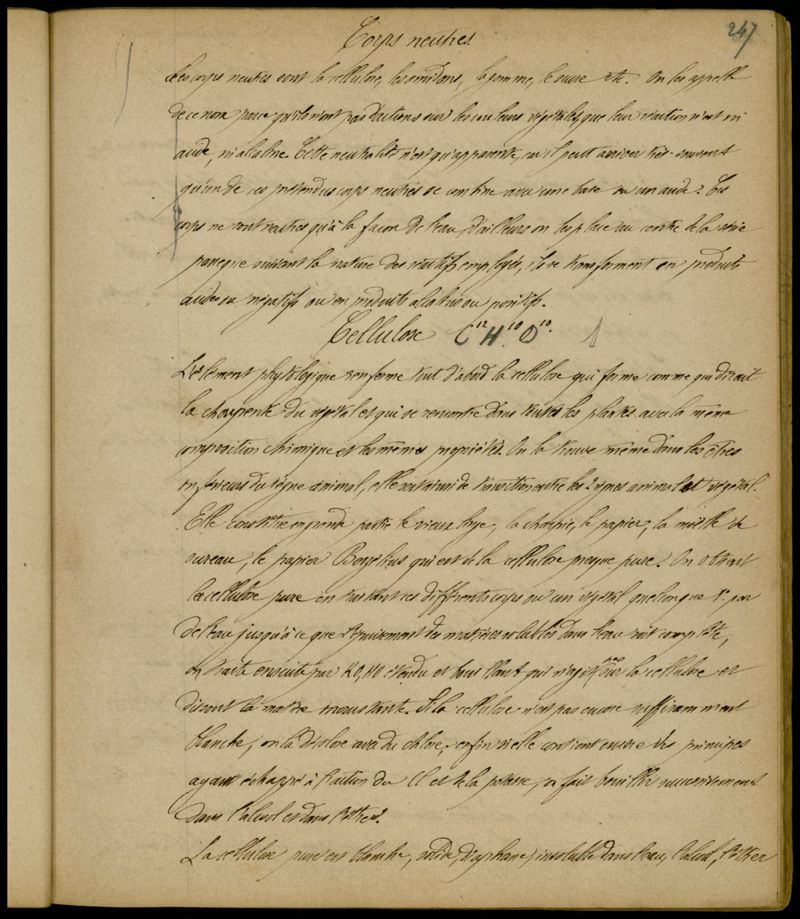 247
Corps neutres
Les corps neutres sont la cellulose, les amidons, la gomme, le sucre etc. On les appelle
de ce nom parce qu'ils n'ont pas d'actions sur les couleurs végétales, que leur réaction n'est ni
acide, ni alcaline. Cette neutralité n'est qu'apparente, car il peut arriver très souvent
qu'un de ces prétendus corps neutres se combine avec une base ou un acide. Ces
corps ne sont neutres qu'à la façon de l'eau, d'ailleurs on les place au centre de la série
parceque suivant la nature des réactifs employés, ils se transforment en produits
acides ou négatifs ou en produits alcalins ou positifs.
Cellulose C¹² H¹⁰ O¹⁰.
L'élément phytologique renferme tout d'abord la cellulose qui forme comme qui dirait
la charpente du végétal et qui se rencontre dans toutes les plantes avec la même
composition chimique et les mêmes propriétés. On la trouve même dans les êtres
inférieurs du règne animal, elle sert ainsi de transition entre les 2 règnes animal et végétal.
Elle constitue en grande partie le vieux linge, la charpie, le papier, la moëlle de
sureau, le papier Berzélius qui est de la cellulose presque pure. On obtient
la cellulose pure en traitant ces différents corps ou un végétal quelconque 1° par
de l'eau jusqu'à ce que l'épuisement des matières solubles dans l'eau soit complète,
on traite ensuite par KO,HO étendu et bouillant qui n'agit pas sur la cellulose et
dissout la matière incrustante. Si la cellulose n'est pas encore suffisamment
blanche, on la décolore avec du chlore, enfin si elle contient encore des principes
ayant échappé à l'action du Cl et de la potasse, on fait bouillir successivement
dans l'alcool et dans l'éther.
La cellulose pure est blanche, solide, diaphane, insoluble dans l'eau, l'alcool, l'éther